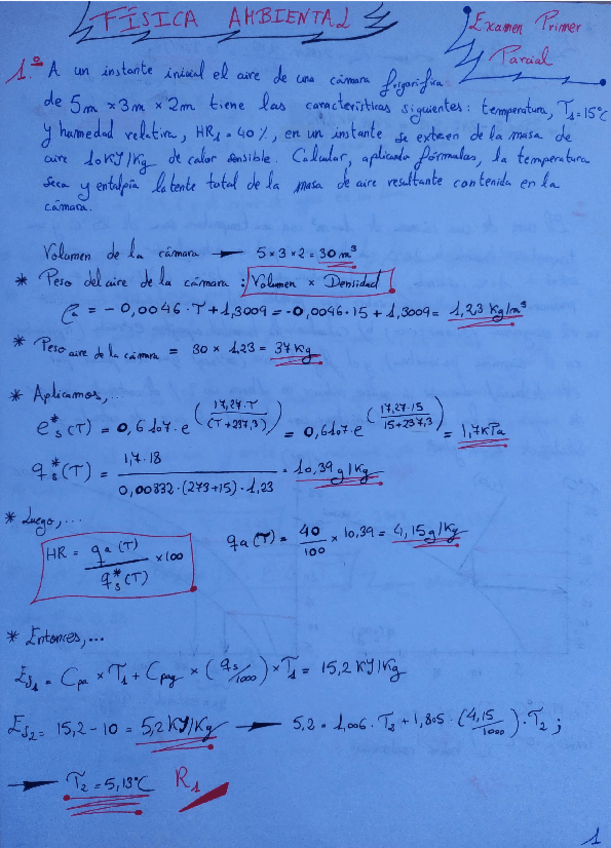 FÍSICA AMBIENTAL
Examen Primer
Parcial
1.º A un instante inicial el aire de una cámara frigorífica
de 5m x 3m x 2m tiene las características siguientes: temperatura, T₁ = 15ºC
y humedad relativa, HR₁ = 40%, en un instante se extraen de la masa de
aire 10 KJ/Kg de calor sensible. Calcular, aplicando fórmulas, la temperatura
seca y entalpía latente total de la masa de aire resultante contenida en la
cámara.
Volumen de la cámara → 5 x 3 x 2 = 30 m³
* Peso del aire de la cámara: Volumen x Densidad
ρa = - 0,0046 · T + 1,3009 = -0,0046 · 15 + 1,3009 = 1,23 Kg/m³
* Peso aire de la cámara = 30 x 1,23 = 37 Kg
* Aplicamos,...
e*s(T) = 0,6107 · e^(17,27·T / (T+237,3)) = 0,6107 · e^(17,27·15 / 15+237,3) = 1,7 KPa
q*s(T) = 1,7 · 18 / 0,00832 · (273+15) · 1,23 = 10,39 g/Kg
* Luego,...
HR = qa(T) / q*s(T) x 100
qa(T) = 40/100 x 10,39 = 4,15 g/Kg
* Entonces,...
Es₁ = Cpa x T₁ + Cpag x (qs/1000) x T₁ = 15,2 KJ/Kg
Es₂ = 15,2 - 10 = 5,2 KJ/Kg → 5,2 = 1,006 · T₂ + 1,805 · (4,15/1000) · T₂ ;
→ T₂ = 5,13ºC R₁
1